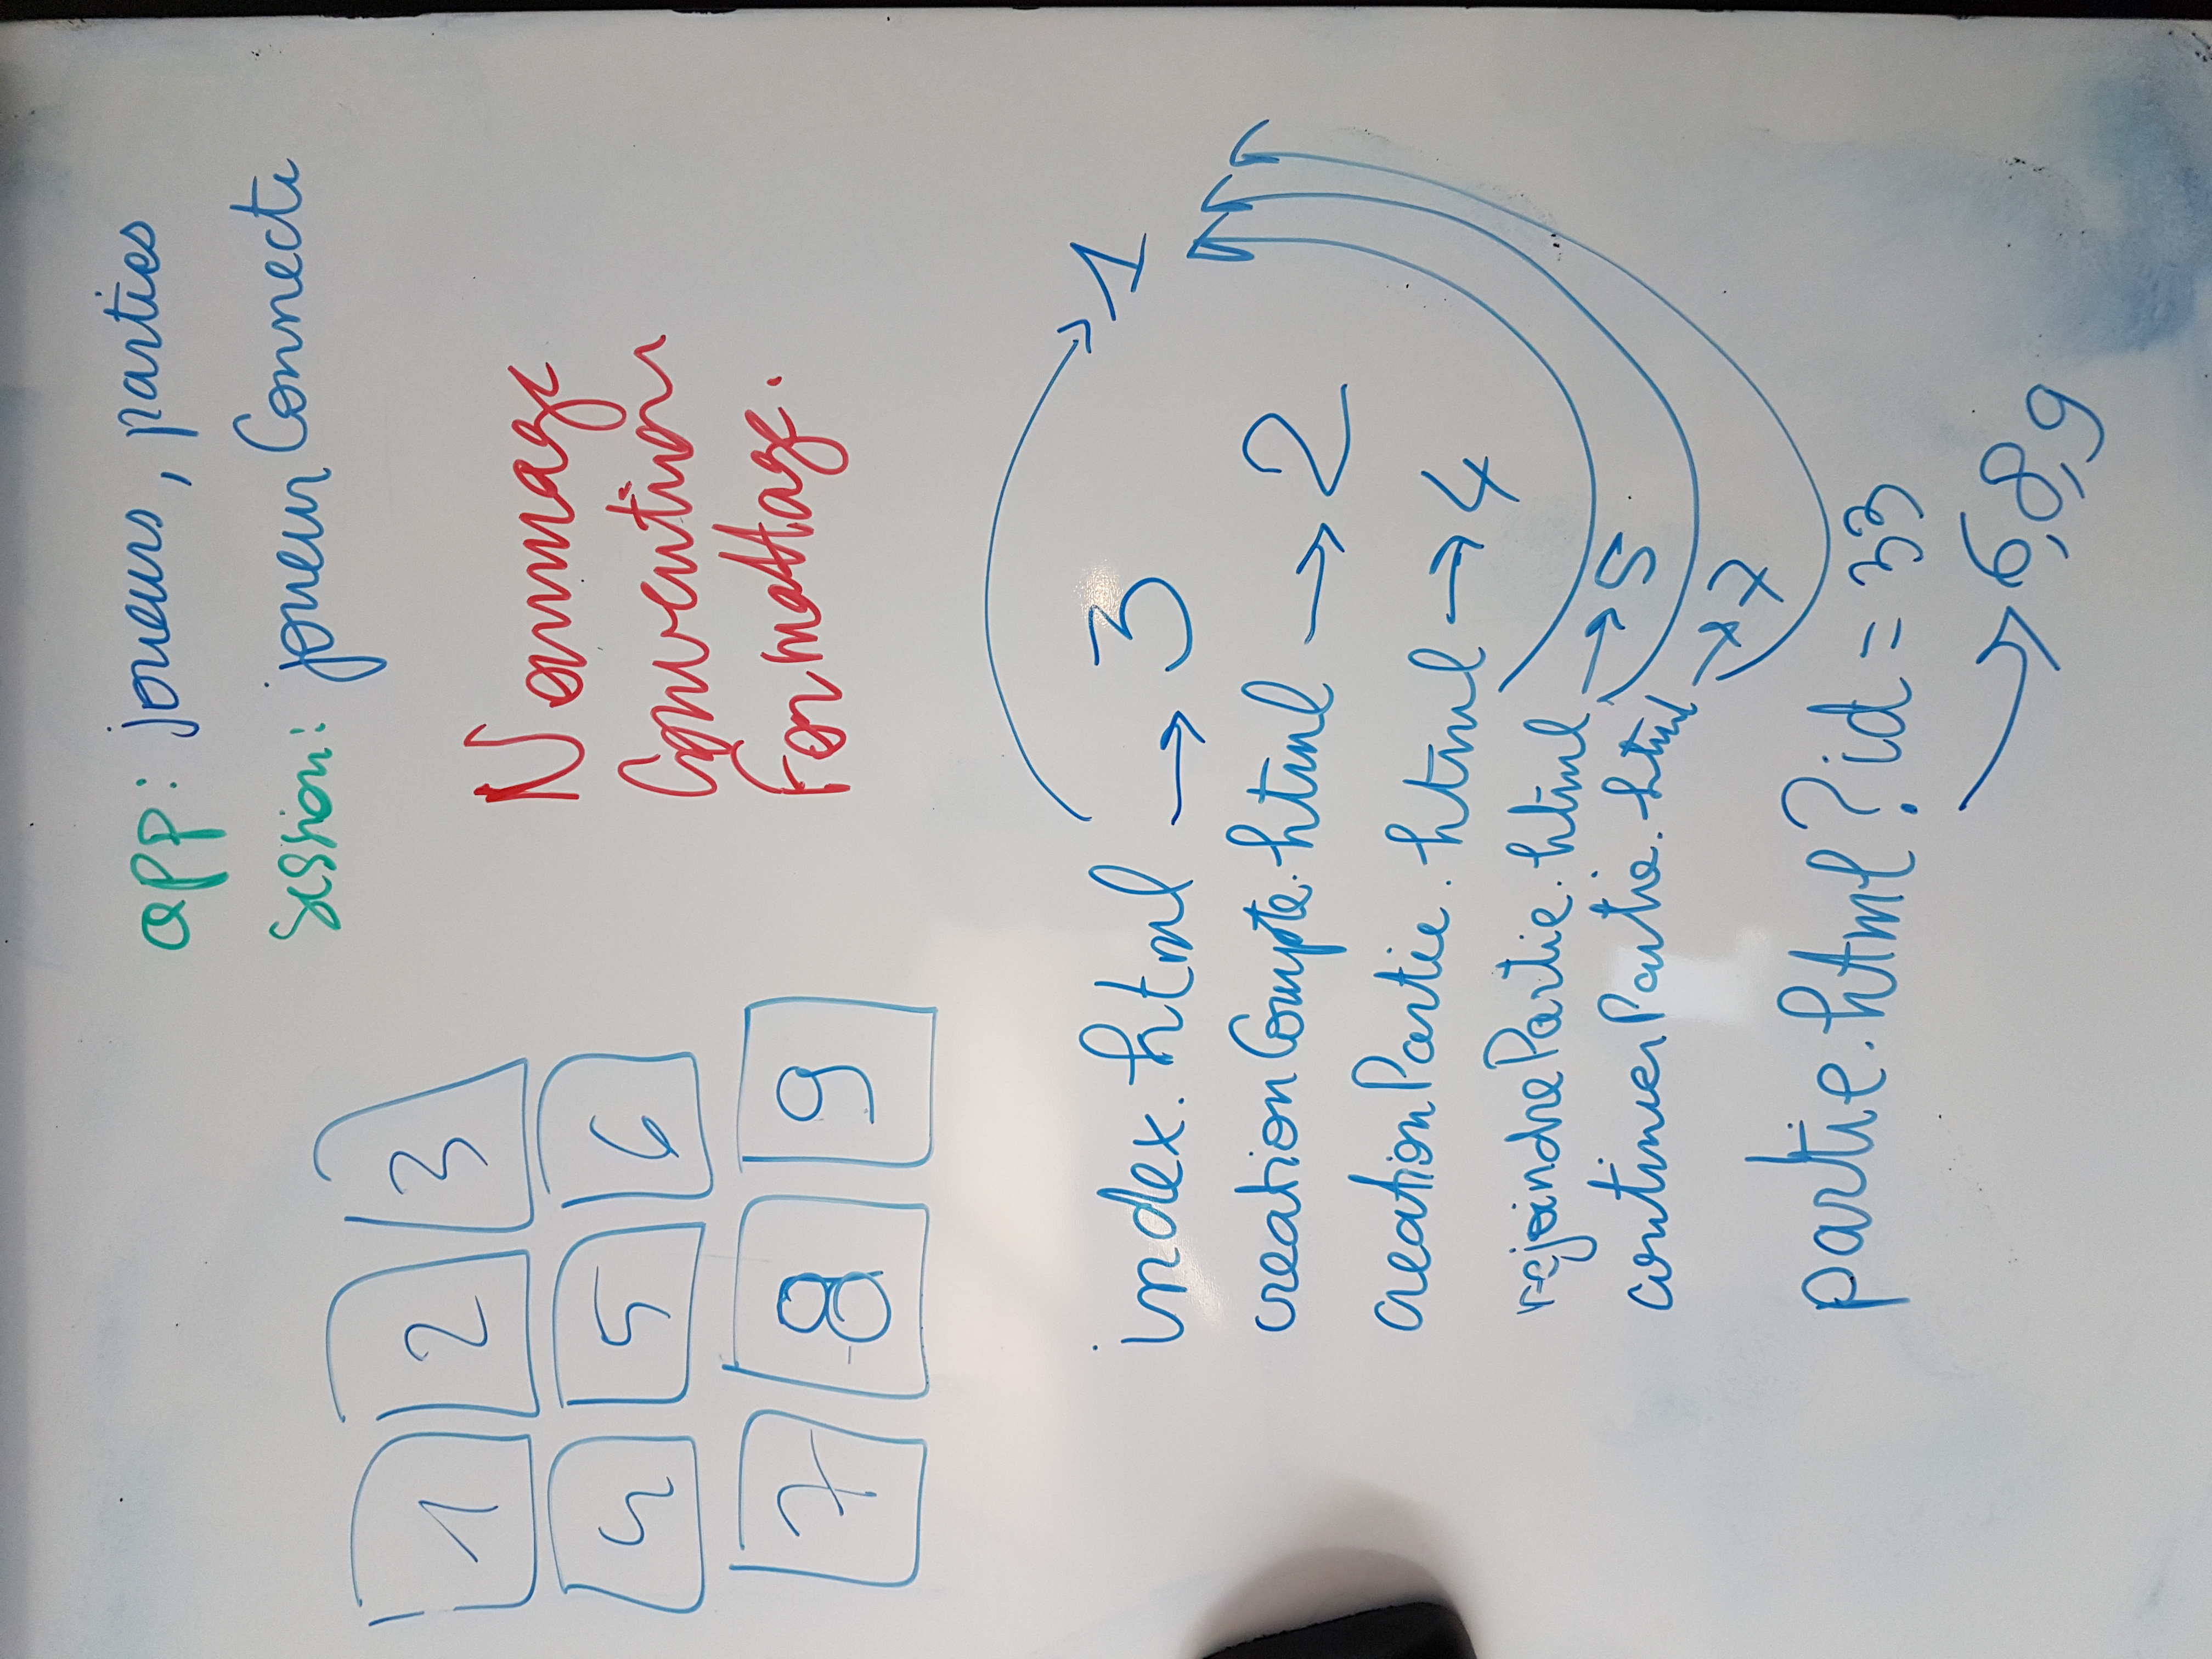 app: joueurs, parties
session: joueurConnecte
1 2 3
4 5 6
7 8 9
Nommage
Convention
Formattage.
1
index.html → 3
creationCompte.html → 2
creationPartie.html → 4
rejoindrePartie.html → 5
continuerPartie.html → 7
partie.html?id=33
→ 6,8,9